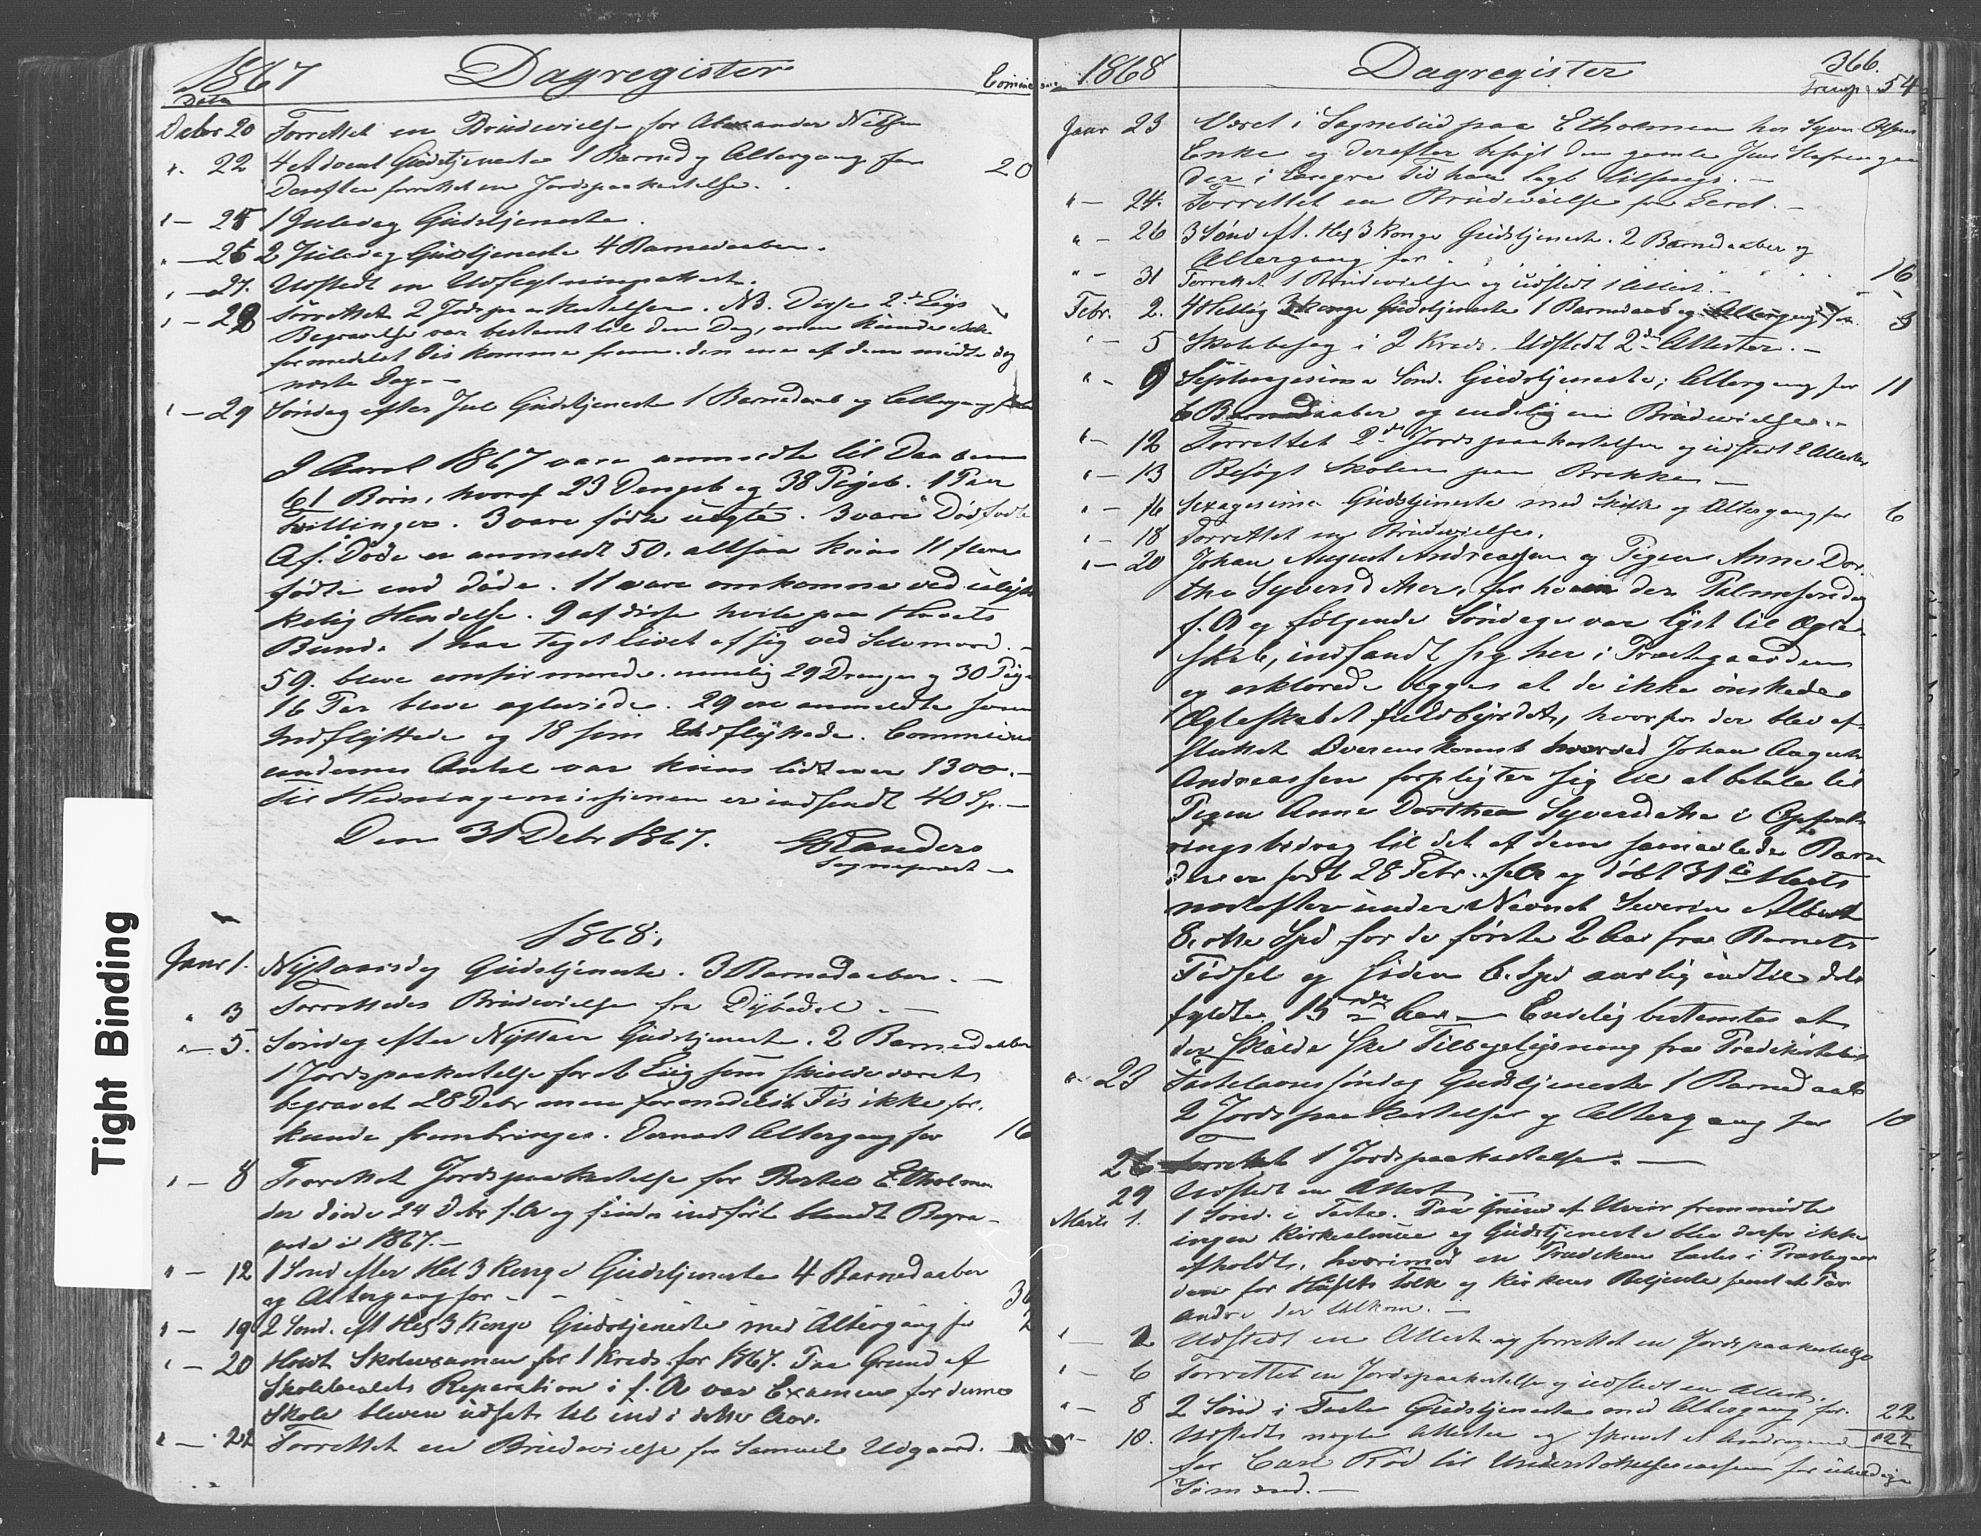 1867 Dagregister
Date
Debr 20 Forrettet en Brudevielse for Alexander Nilsen
" 22 4 Advent Gudstjeneste 1 Barned og Altergang for 20
Derefter forrettet en Jordspaakastelse.
" — 25 1 Juledag Gudstjeneste.
" — 26 2 Juledag Gudstjeneste 4 Barnedaaber.
" — 27. Udstedt en Udflytningsattest.
" — 28 Forrettet 2 Jordspaakastelser. NB. Disse 2de Ligs
Begravelse var bestemt til den Dag, men kunde ikke
formedelst Iis komme frem. den ene af dem mødte dog
næste Dag. —
" — 29 Søndag efter Jul Gudstjeneste 1 Barnedaab og Altergang
I Aaret 1867 vare anmeldte til Daaben
61 Børn, hvoraf 23 Drengeb og 38 Pigeb. 1 Par
Tvillinger. 3 vare fødte uægte. 3 vare Dødfødte
Af Døde er anmeldt 50, altsaa kuns 11 flere
fødte end døde. 11 vare omkomne ved ulyk
kelig Hendelse. 9 af disse hvile paa Havets
Bund. 1 har taget Livet af sig ved Selvmord. —
59 bleve confirmerede. nemlig 29 Drenge og 30 Pige
16 Par bleve ægteviede. 29 ere anmeldte som
Indflyttede og 18 som Udflyttede. Communi
candernes Antal var kuns lidt over 1300. —
Til Hedningemissionen er indsendt 40 Sp. —
Den 31 Debr 1867.
Sogneprest
1868.
Januar 1. Nytaarsdag Gudstjeneste. 3 Barnedaaber. —
" 3 Forrettedes Brudevielse fra Dybedal. —
" — 5. Søndag efter Nyttaar Gudstjeneste. 2 Barnedaaber
1 Jordspaakastelse for et Liig som skulde været
begravet 28 Debr men formedelst Iis ikke for.
kunde frembringes. Dernæst Altergang for 16
" — 8 Forrettet Jordspaakastelse for Etholmen
der døde 24 Debr f.A og findes indført blandt Begra
vede i 1867. —
" — 12 1 Sønd efter Hel 3 Konge Gudstjeneste 4 Barnedaaber
og Altergang for —
" — 19 2 Sønd. eft Hel 3 Konge Gudstjeneste med Altergang for
" — 20 Holdt Skoleexamen for 1 Kreds for 1867. Paa Grund af
Skolelocalets Reparation i f. A var Examen for denne
Skole bleven udsat til ind i dette Aar.
" — 22 Forrettet en Brudevielse for Samuel Udgaard. —
1868 Dagregister 366.
54
Januar 23 Været i Sognebud paa Etholmen hos Syver Olsens
Enke og derefter besøgt den gamle Jens
der i længre Tid har lagt tilsengs. —
" — 24. Forrettet en Brudevielse —
" — 26 3 Sønd eft. Hel 3 Konge Gudstjeneste. 2 Barnedaaber og
Altergang for 16
" — 31 Forrettet 1 Brudevielse og udstedt 1 Attest. —
Febr. 2. 4 Hellig 3 Konge Gudstjeneste 1 Barnedaab og Altergang for
" — 5 Skolebesøg i 2 Kreds. Udstedt 2de Attester. —
" — 9 Septuagesima Sønd. Gudstjeneste; Altergang for 11
6 Barnedaaber og endelig en Brudevielse. —
" — 12 Forrettet 2de Jordspaakastelser og udstedt 2 Attester
" — 13 Besøgt Skolen paa Brekke —
" — 16 Sexagesima Gudstjeneste med Skrifte og Altergang for 6
" — 18 Forrettet en Brudevielse.
" — 20 Johan August Andreassen og Pigen Anne Dor
thea Syversdatter, for hvem der Palmesøndag
f. A og følgende Søndage var lyst til Ægte
skab, indfandt sig her i Præstegaarden
og erklærede begge at de ikke ønskede
Ægteskabet fuldbyrdet, hvorfor der blev af
sluttet Overenskomst hvorved Johan August
Andreassen forpligter sig til at betale til
Pigen Anne Dorthea Syversdatter i Opfost
ringsbidrag til det af dem sammavlede Barn
der er født 28 Febr. f.A og døbt 31te Marts
næstefter under Navnet Severin Albert
8, otte Spd for de første 2 Aar fra Barnets
Fødsel og siden 6. Spd aarlig indtil dets
fyldte 15nde Aar — Endelig bestemtes at
der skulde ske Tilbagelysning fra Prædikestolen
" 23 Fastelavns søndag Gudstjeneste 1 Barnedaab
2 Jordspaakastelser og Altergang for 10
26 Forrettet 1 Jordspaakastelse. —
29 Udstedt en Attest
Marts 1. 1 Sønd. i Faste. Paa Grund af Uveir fremmødte
ingen Kirkealmue og Gudstjeneste blev derfor ikke
afholdt, hvorimod en Prædiken læstes i Præstegaar
den for Husets Folk og Kirkens Betjente samt et Par
andre der udkom. —
" — 2 Udstedt en Attest og forrettet en Jordspaakastelse
" — 6 Forrettet en Jordspaakastelse og udstedt en Attest.
" — 8 2 Sønd i Faste Gudstjeneste med Altergang for. 22
" — 10. Udstedt nogle Attester og skrevet et Andragende 122
for Carl Rød til Understøttelsescassen for
Sømænd. —
Tight Binding